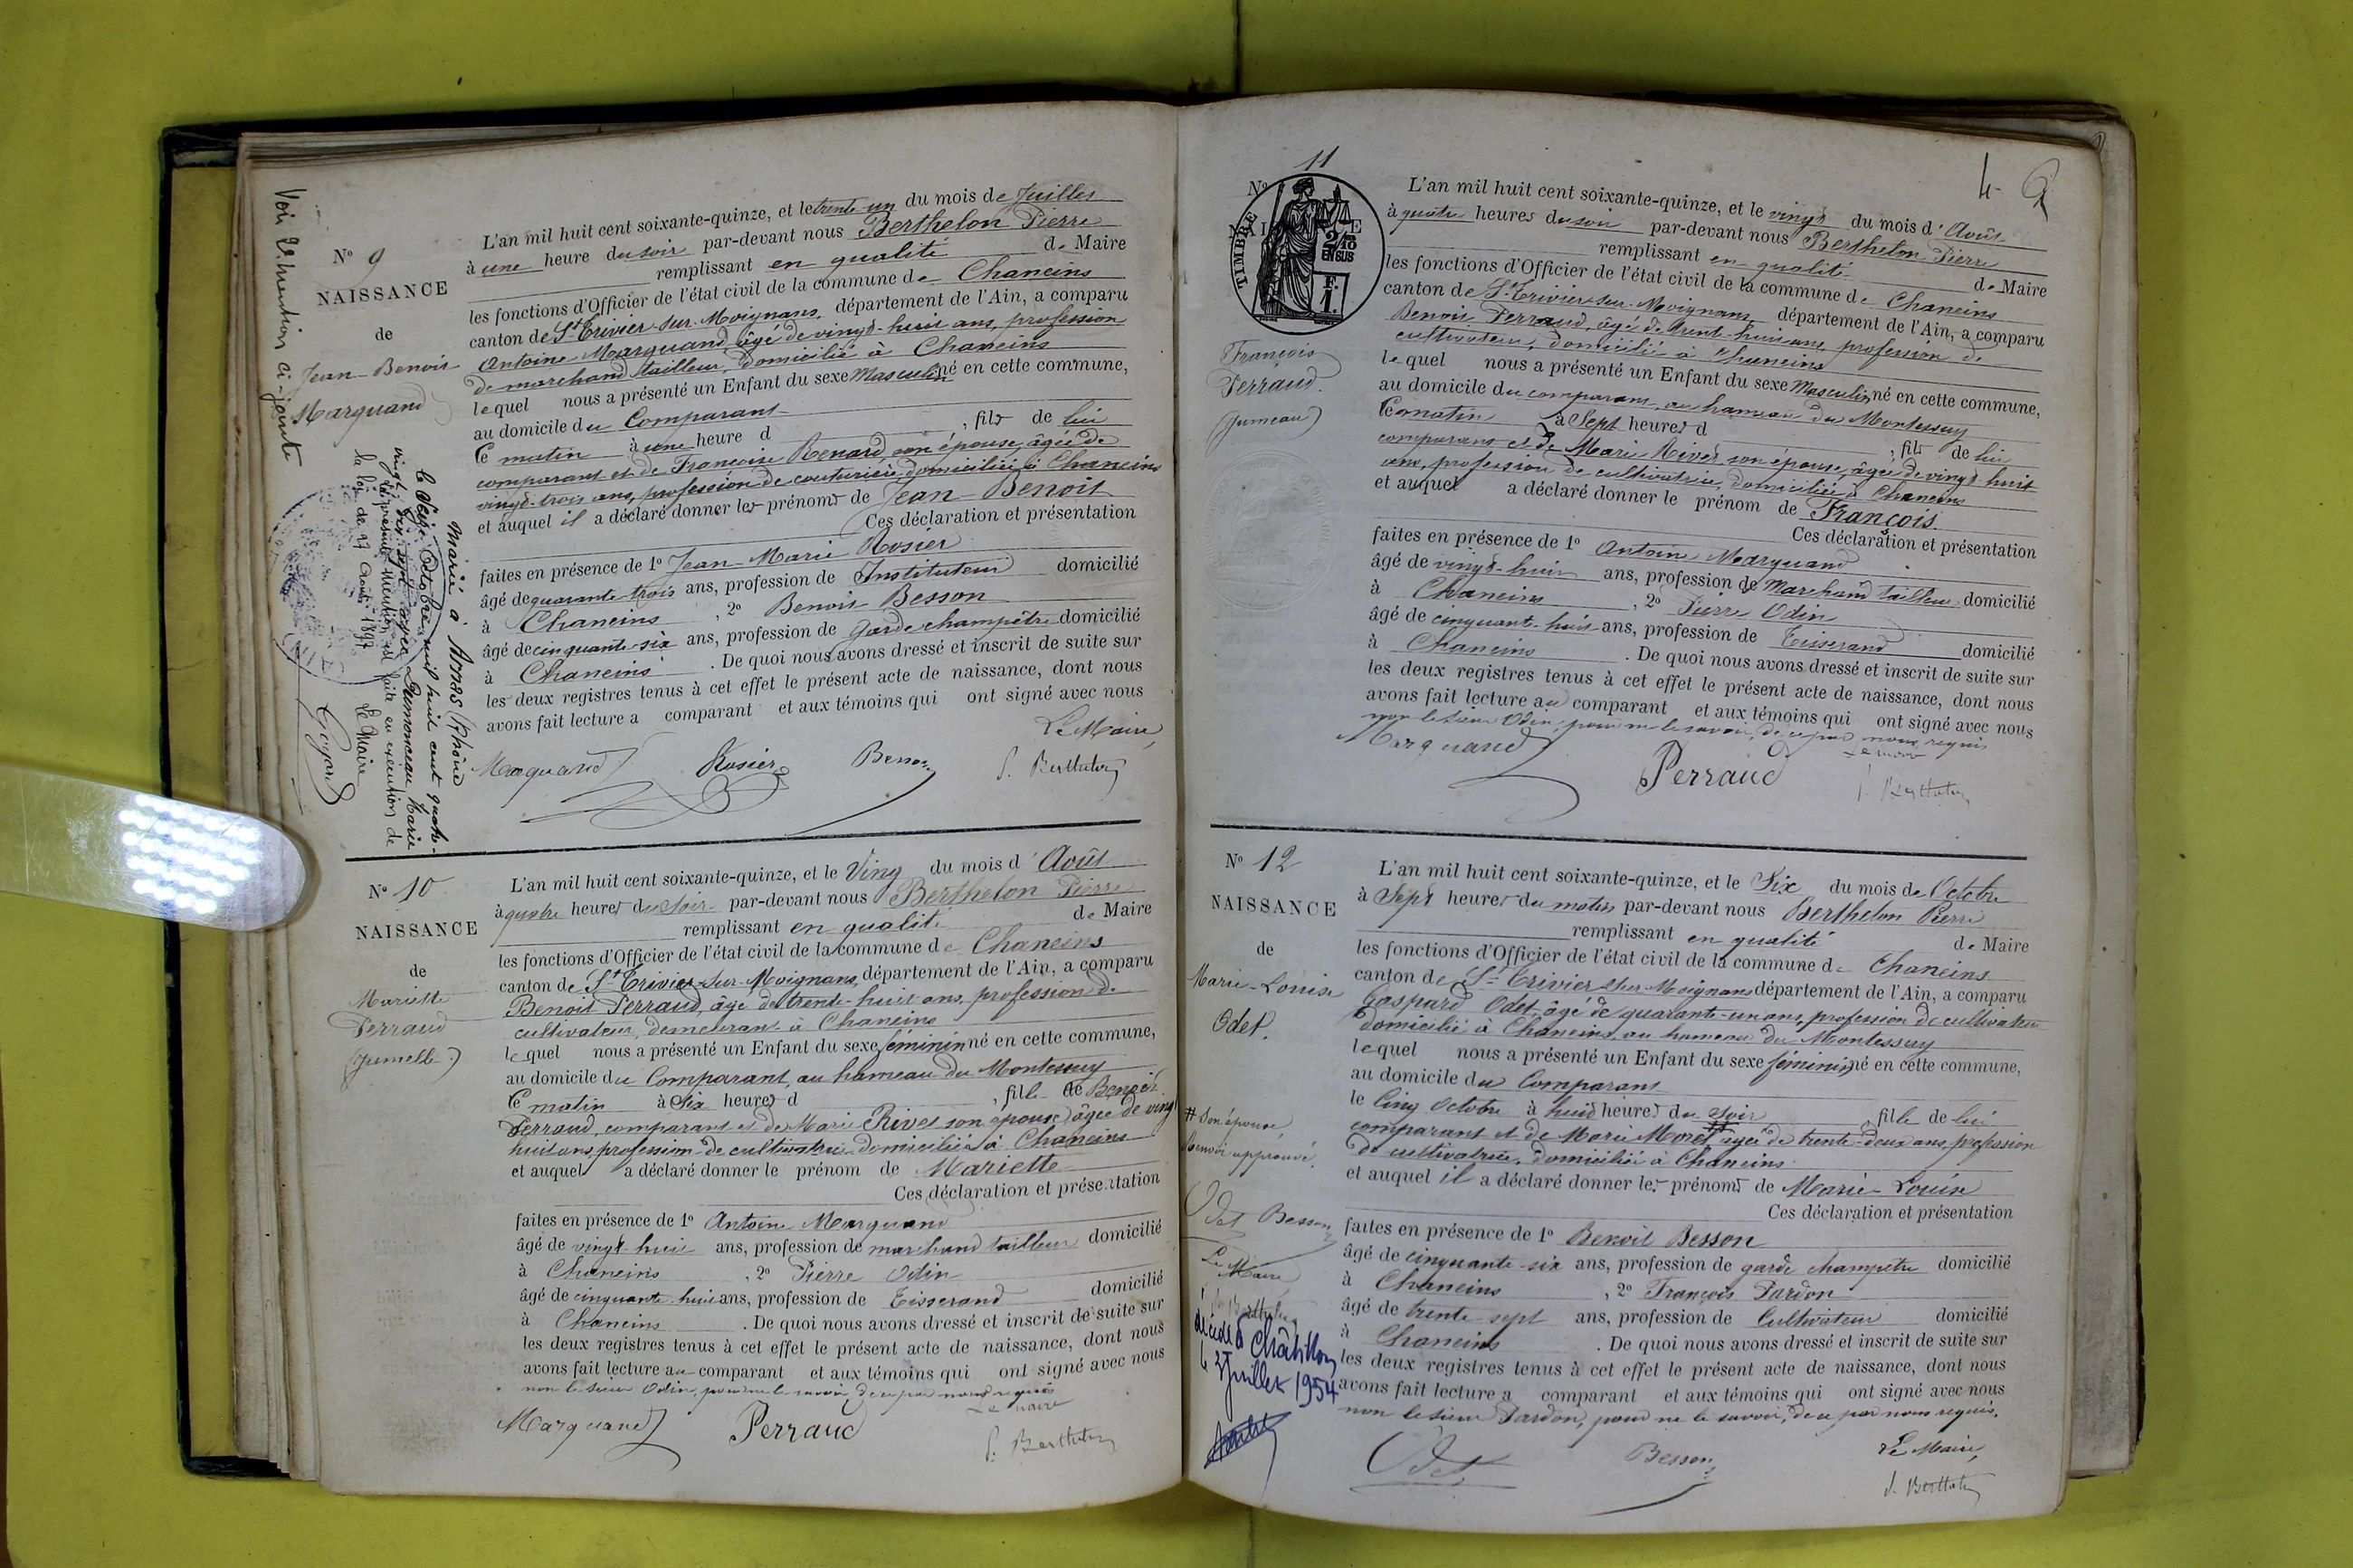 Voir 2e mention ci-jointe
N° 9
NAISSANCE
de
Jean-Benoit
Marquand
Marié à Arnas (Rhône)
le seize Octobre mil huit cent quatre-
vingt dix sept avec Dumonceau Marie
La présente mention est faite en exécution de
la loi de 17 Août 1897
Le Maire
L'an mil huit cent soixante-quinze, et le trente-un du mois de Juillet
à une heure du soir par-devant nous Berthelon Pierre
remplissant en qualité de Maire
les fonctions d'Officier de l'état civil de la commune de Chaneins
canton de St Trivier-sur-Moignans, département de l'Ain, a comparu
Antoine Marquand âgé de vingt-huit ans, profession
de marchand tailleur, domicilié à Chaneins
lequel nous a présenté un Enfant du sexe Masculin né en cette commune,
au domicile du Comparant
Ce matin à une heure d , fils de lui
comparant et de Françoise Renard, son épouse, âgée de
vingt-trois ans, profession de couturière, domiciliée à Chaneins
et auquel il a déclaré donner les prénoms de Jean-Benoit
Ces déclaration et présentation
faites en présence de 1° Jean-Marie Rosier
âgé de quarante-trois ans, profession de Instituteur domicilié
à Chaneins , 2° Benoit Besson
âgé de cinquante-six ans, profession de garde champêtre domicilié
à Chaneins . De quoi nous avons dressé et inscrit de suite sur
les deux registres tenus à cet effet le présent acte de naissance, dont nous
avons fait lecture a comparant et aux témoins qui ont signé avec nous
Le Maire,
Marquand Rosier Besson P. Berthelon
N° 10
NAISSANCE
de
Mariette
Perraud
(Jumelle)
L'an mil huit cent soixante-quinze, et le Vingt du mois d'Août
à quatre heures du soir par-devant nous Berthelon Pierre
remplissant en qualité de Maire
les fonctions d'Officier de l'état civil de la commune de Chaneins
canton de St Trivier-sur-Moignans, département de l'Ain, a comparu
Benoit Perraud, âgé de trente-huit ans, profession de
cultivateur, demeurant à Chaneins
lequel nous a présenté un Enfant du sexe féminin né en cette commune,
au domicile du Comparant, au hameau du Montessuy
Ce matin à Six heures d , fille de Benoit
Perraud, comparant et de Marie Rives son épouse, âgée de vingt
huit ans, profession de cultivatrice domiciliée à Chaneins
et auquel a déclaré donner le prénom de Mariette
Ces déclaration et présentation
faites en présence de 1° Antoine Marquand
âgé de vingt-huit ans, profession de marchand tailleur domicilié
à Chaneins , 2° Pierre Odin
âgé de cinquante-huit ans, profession de Tisserand domicilié
à Chaneins . De quoi nous avons dressé et inscrit de suite sur
les deux registres tenus à cet effet le présent acte de naissance, dont nous
avons fait lecture au comparant et aux témoins qui ont signé avec nous
non le sieur Odin, pour ne le savoir, de ce par nous requis
Le Maire
Marquand Perraud P. Berthelon
4
N° 11
TIMBRE
2/10
EN SUS
F.
1.
François
Perraud.
(Jumeau)
L'an mil huit cent soixante-quinze, et le vingt du mois d'Août
à quatre heures du soir par-devant nous Berthelon Pierre
remplissant en qualité de Maire
les fonctions d'Officier de l'état civil de la commune de Chaneins
canton de St Trivier-sur-Moignans, département de l'Ain, a comparu
Benoit Perraud, âgé de trent-huit ans, profession de
cultivateur, domicilié à Chaneins
lequel nous a présenté un Enfant du sexe Masculin né en cette commune,
au domicile du comparant, au hameau du Montessuy
Ce matin à Sept heures d , fils de lui
comparant et de Marie Rives son épouse, âgée de vingt huit
ans, profession de cultivatrice, domiciliée à Chaneins
et auquel a déclaré donner le prénom de François
Ces déclaration et présentation
faites en présence de 1° Antoine Marquand
âgé de vingt-huit ans, profession de Marchand tailleur domicilié
à Chaneins , 2° Pierre Odin
âgé de cinquante-huit ans, profession de Tisserand domicilié
à Chaneins . De quoi nous avons dressé et inscrit de suite sur
les deux registres tenus à cet effet le présent acte de naissance, dont nous
avons fait lecture au comparant et aux témoins qui ont signé avec nous
non le sieur Odin, pour ne le savoir, de ce par nous requis
Le Maire
Marquand Perraud P. Berthelon
N° 12
NAISSANCE
de
Marie-Louise
Odet.
# Son épouse,
Renvoi approuvé.
Odet Besson
Le Maire
P. Berthelon
décédée à Châtillon
le 2 Juillet 1954
L'an mil huit cent soixante-quinze, et le Six du mois de Octobre
à Sept heures du matin par-devant nous Berthelon Pierre
remplissant en qualité de Maire
les fonctions d'Officier de l'état civil de la commune de Chaneins
canton de St Trivier sur Moignans département de l'Ain, a comparu
Gaspard Odet, âgé de quarante-un ans, profession de cultivateur
domicilié à Chaneins, au hameau du Montessuy
lequel nous a présenté un Enfant du sexe féminin né en cette commune,
au domicile du Comparant
le Cinq Octobre à huit heures du soir , fille de lui
comparant et de Marie Morel # agée de trente-deux ans, profession
de cultivatrice, domiciliée à Chaneins
et auquel il a déclaré donner les prénoms de Marie-Louise
Ces déclaration et présentation
faites en présence de 1° Benoit Besson
âgé de cinquante-six ans, profession de garde champêtre domicilié
à Chaneins , 2° François Pardon
âgé de trente-sept ans, profession de Cultivateur domicilié
à Chaneins . De quoi nous avons dressé et inscrit de suite sur
les deux registres tenus à cet effet le présent acte de naissance, dont nous
avons fait lecture a comparant et aux témoins qui ont signé avec nous
non le sieur Pardon, pour ne le savoir, de ce par nous requis.
Le Maire,
Odet Besson P. Berthelon